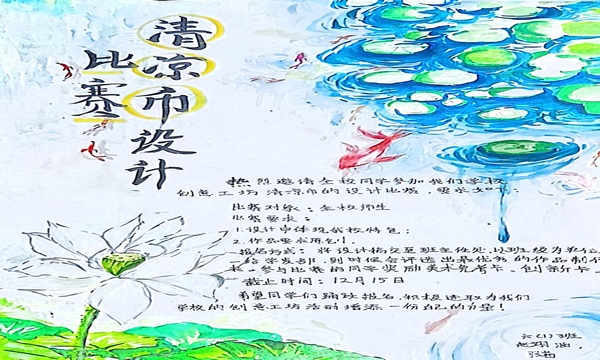 清凉币设计
比赛
热烈邀请全校同学参加我们学校
创意工坊清凉币的设计比赛，要求如下：
比赛对象：全校师生
比赛要求：
1.设计中体现我校特色；
2.作品要求用
报名方式：将设计稿交至班主任处，以班级为单位
给学发部，到时候会评选出最优秀的作品制作
参与比赛的同学奖励美术免考卡、创新
截止时间：12月15日
希望同学们踊跃报名，积极进取，为我们
学校的创意工坊活动增添一份自己的力量！
六(1)班